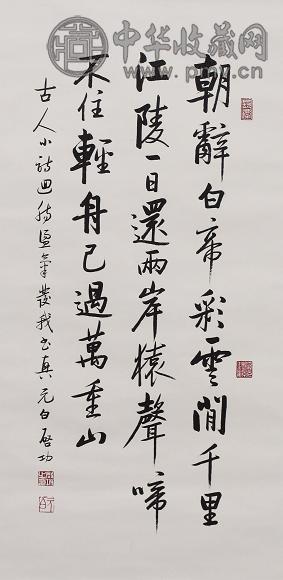 中华收藏网
朝辭白帝彩雲間千里
江陵一日還兩岸猿聲啼
不住輕舟已過萬重山
古人小詩迴腸盪氣發我書真元白啟功